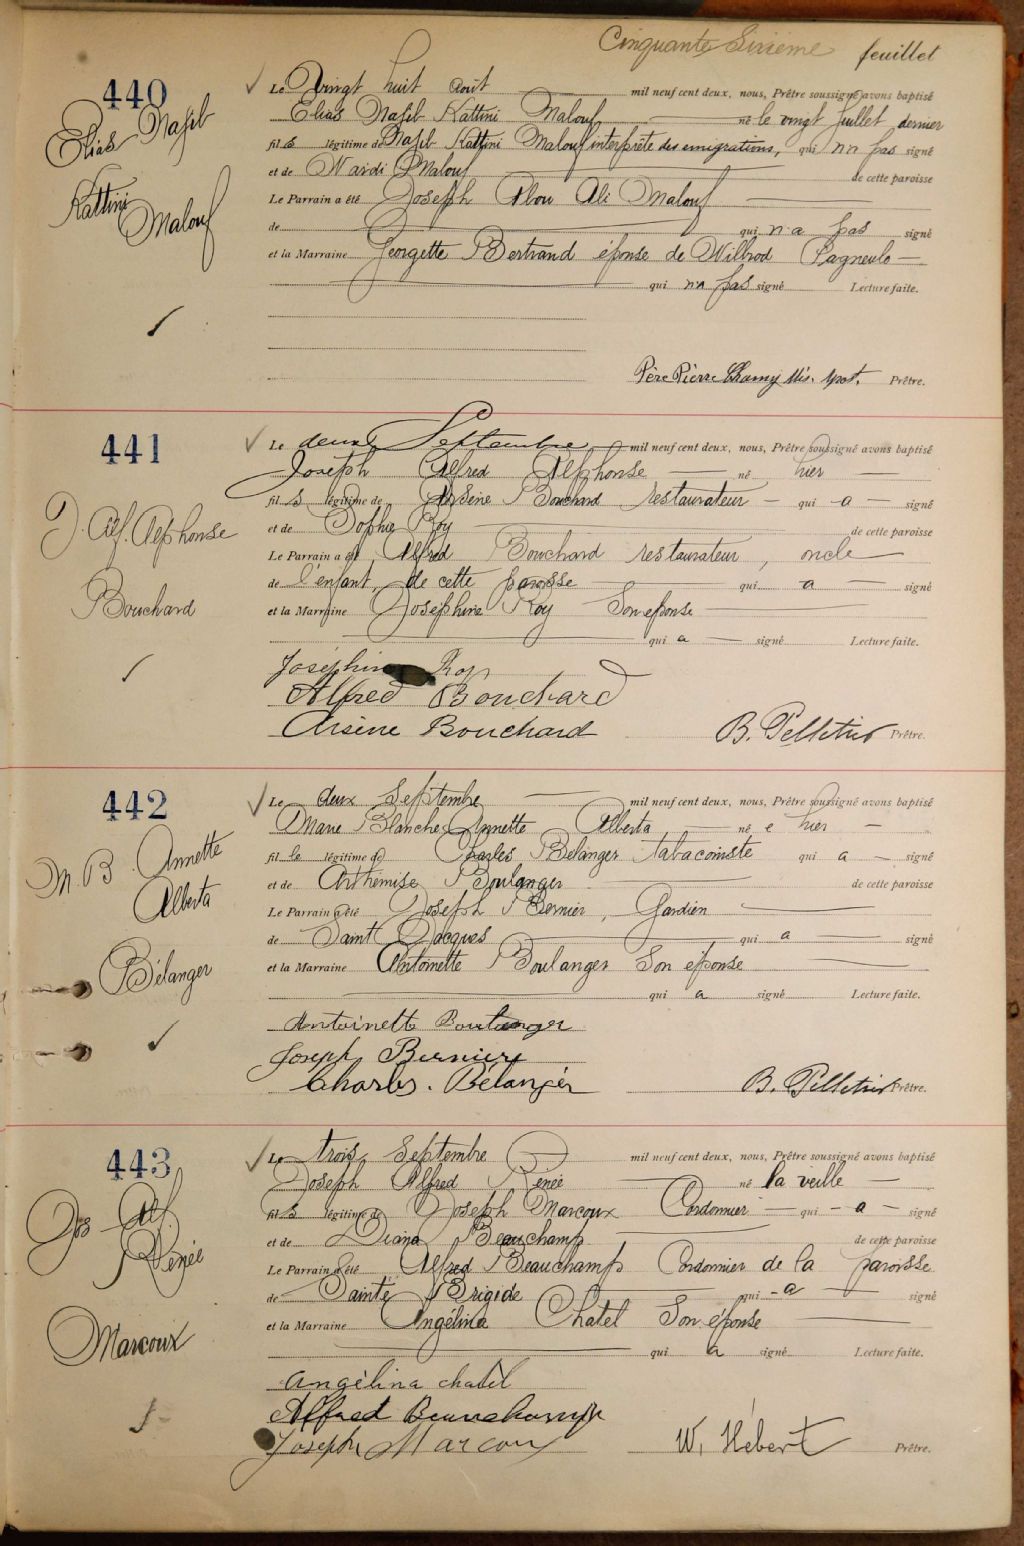 Cinquante Sixième feuillet
440
Elias Nasib
Kattini
Malouf
Le Vingt huit août mil neuf cent deux, nous, Prêtre soussigné avons baptisé
Elias Nasib Kattini Malouf né le vingt juillet dernier
fils légitime de Nasib Kattini Malouf interprète des emigrations, qui n'a pas signé
et de Wardi Malouf de cette paroisse
Le Parrain a été Joseph Abou Ali Malouf
de qui n'a pas signé
et la Marraine Georgette Bertrand épouse de Wilbrod Pagneulo
qui n'a pas signé Lecture faite.
Père Pierre Chamy Mis. Apost. Prêtre.
441
J. Alf. Alphonse
Bouchard
Le deux Septembre mil neuf cent deux, nous, Prêtre soussigné avons baptisé
Joseph Alfred Alphonse né hier
fils légitime de Arsène Bouchard restaurateur qui a signé
et de Sophie Roy de cette paroisse
Le Parrain a été Alfred Bouchard restaurateur, oncle
de l'enfant, de cette paroisse qui a signé
et la Marraine Joséphine Roy Son epouse
qui a signé Lecture faite.
Joséphine Roy
Alfred Bouchard
Arsène Bouchard B. Pelletier Prêtre.
442
M. B. Annette
Alberta
Bélanger
Le deux Septembre mil neuf cent deux, nous, Prêtre soussigné avons baptisé
Marie Blanche Annette Alberta née hier
fille légitime de Charles Bélanger tabaconiste qui a signé
et de Arthémise Boulanger de cette paroisse
Le Parrain a été Joseph Bernier, Gardien
de Saint Jacques qui a signé
et la Marraine Antoinette Boulanger Son épouse
qui a signé Lecture faite.
Antoinette Boulanger
Joseph Bernier
Charles. Bélanger B. Pelletier Prêtre.
443
Jos Alf.
Renée
Marcoux
Le trois Septembre mil neuf cent deux, nous, Prêtre soussigné avons baptisé
Joseph Alfred Renée né la veille
fils légitime de Joseph Marcoux Cordonnier qui a signé
et de Diana Beauchamp de cette paroisse
Le Parrain a été Alfred Beauchamp Cordonnier de la paroisse
de Sainte Brigide qui a signé
et la Marraine Angélina Chatel Son épouse
qui a signé Lecture faite.
Angélina chatel
Alfred Beauchamp
Joseph Marcoux W. Hébert Prêtre.